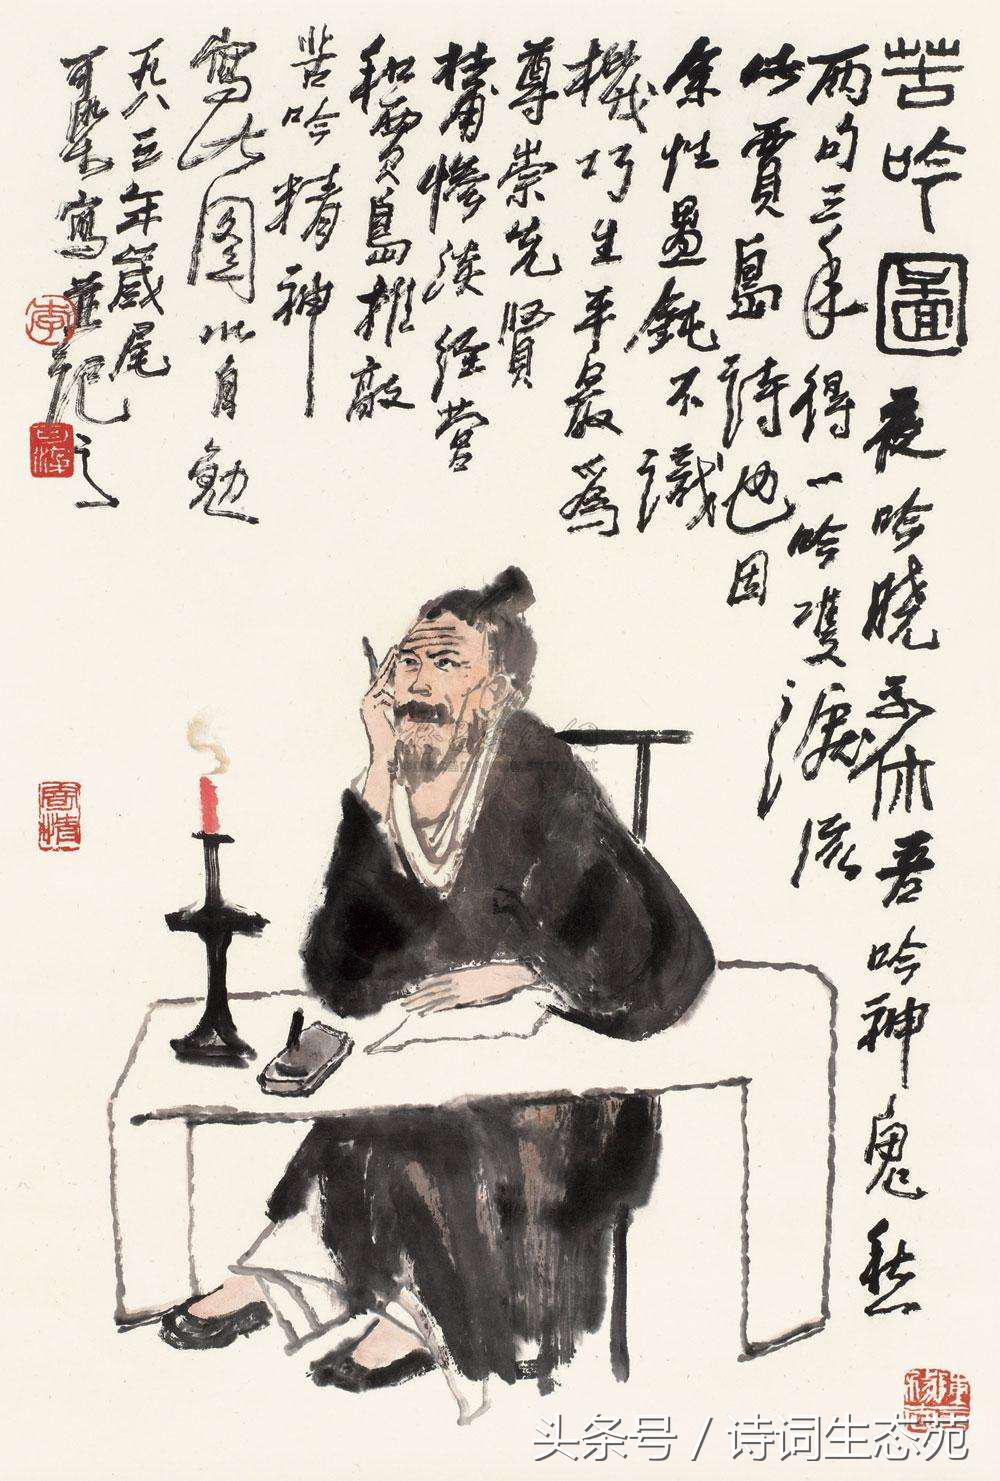 苦吟圖
夜吟曉不休吾吟神鬼愁
兩句三年得一吟雙淚流
此賈島詩也因
余性愚鈍不識
機巧生平最爲
尊崇先賢
慘淡經營
和賈島推敲
苦吟精神
寫此图以自勉
一九八三年歲尾
可染寫並記之
李
可染
头条号 / 诗词生态苑